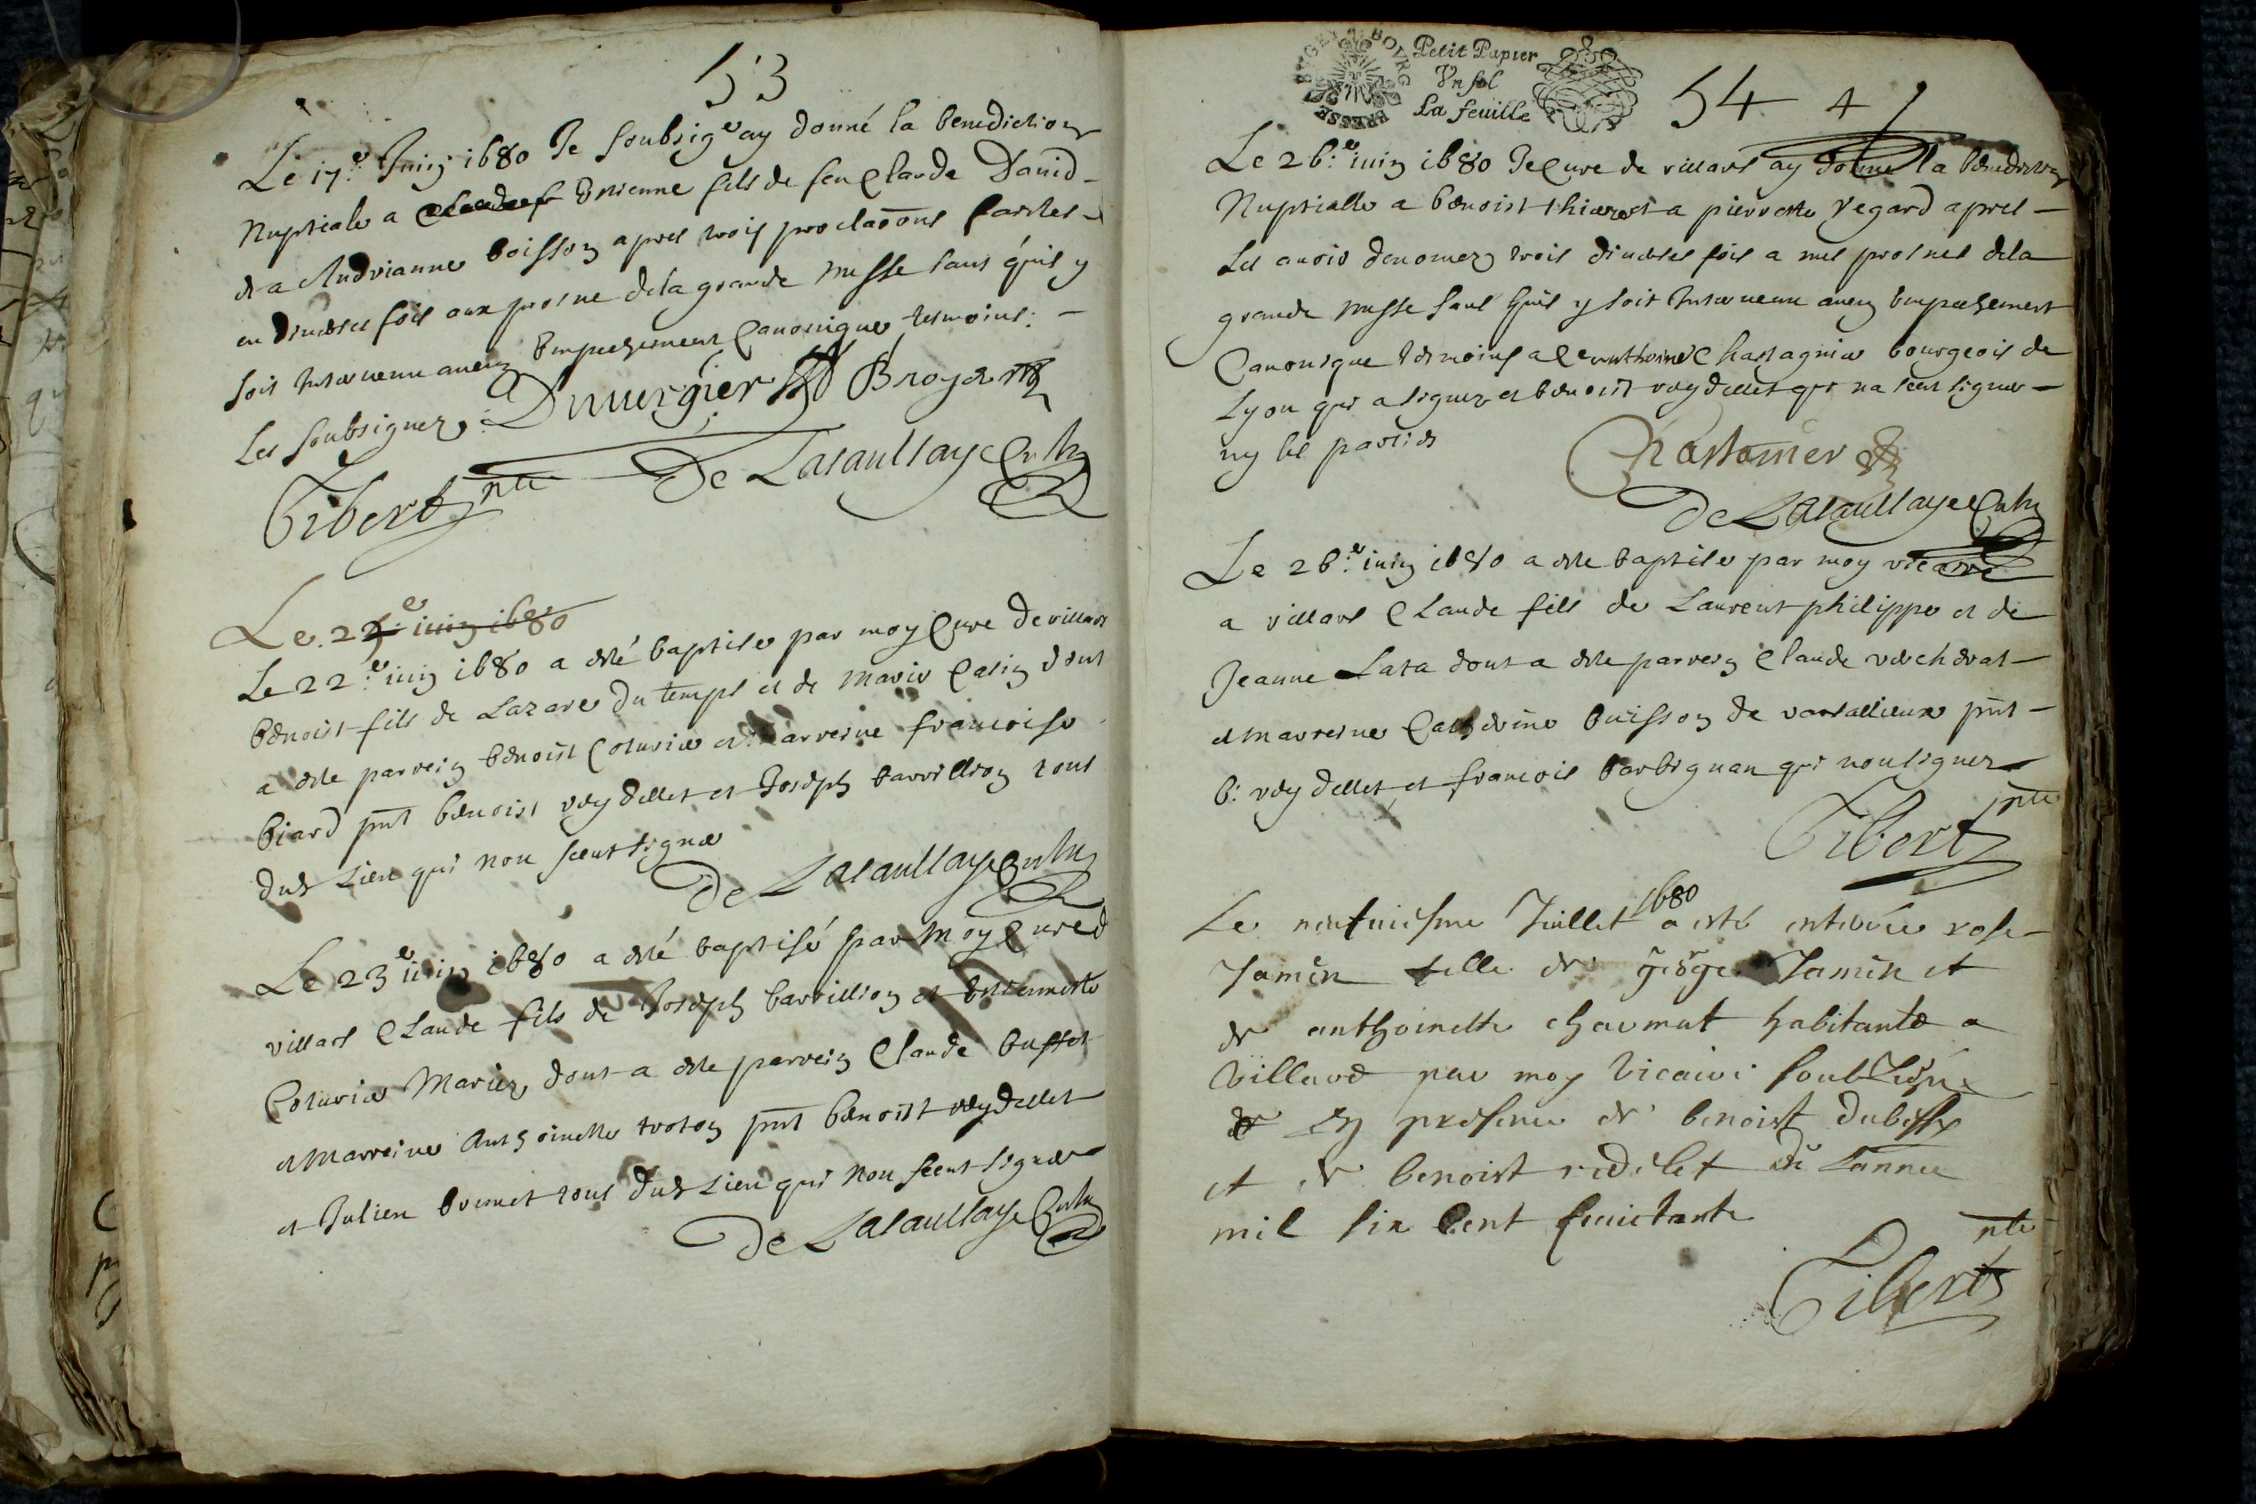 53
Le 17.e Juin 1680 Je soubsig.e ay donné la benediction
Nuptiale a Estienne fils de feu Claude David
et a Andrianne boisson apres trois proclaõons faictes
en diverses fois aux prosne dela grande Messe sans qu'il y
soit Intervenu aucun Empeschement Canonique tesmoins
Les soubsignez Duvergier Broyer
Gibert ptre De Lasaullaye Curé
Le. 22.e iuin 1680
Le 22.e iuin 1680 a esté baptise par moy Cure de villars
benoist fils de Lazare du temps et de Marie Casin dont
a este parrein benoist Coturier et marreine francoise
biard pnt benoist reydellet et Joseph barrillion tous
dud Lieu qui non sceut signer
De Lasaullaye Curé
Le 23.e iuin 1680 a esté baptisé par Moy Cure d
villars Claude fils de Joseph barrillion et Estiennette
Coturier Mariez, dont a este parrein Claude buffet
et Marreine Anthoinette troton pnt benoist reydellet
et Julien bonnet tous dud Lieu qui non sceut signer
De Lasaullaye Curé
BVGEY BOVRG BRESSE
Petit Papier
Vn sol
La feuille
54 4
Le 26.e iuin 1680 Je Cure de villars ay donné la benediction
Nuptialle a benoist thieret a pierrette Regard apres
Les avoir denomez trois diverses fois a mes prosnes dela
grande Messe sans quil y soit Intervenu aucun Empeschement
Canonique tesmoins Chastagnier bourgeois de
Lyon qui a signez et benoist reydellet qui na sceut signer
ny les parties
Chastanier
De Lasaullaye Curé
Le 26.e iuin 1680 a este baptise par moy vicaire
a villars Claude fils de Laurent philippe et de
Jeanne Lata dont a este parrein Claude vercherat
et marreine Catherine buisson de varsallieux pnt
b: reydellet et francois barbignan qui non signez
Gibert ptre
Le neufuiesme Juillet 1680 a esté enterrée rose
Jamin fille de george Jamin et
de anthoinette chaumat habitante a
Villard par moy Vicaire soubsigné
En presence de benoist dubessy
et de benoist redelet de Lannee
mil six Cent huictante
Gibert ptre